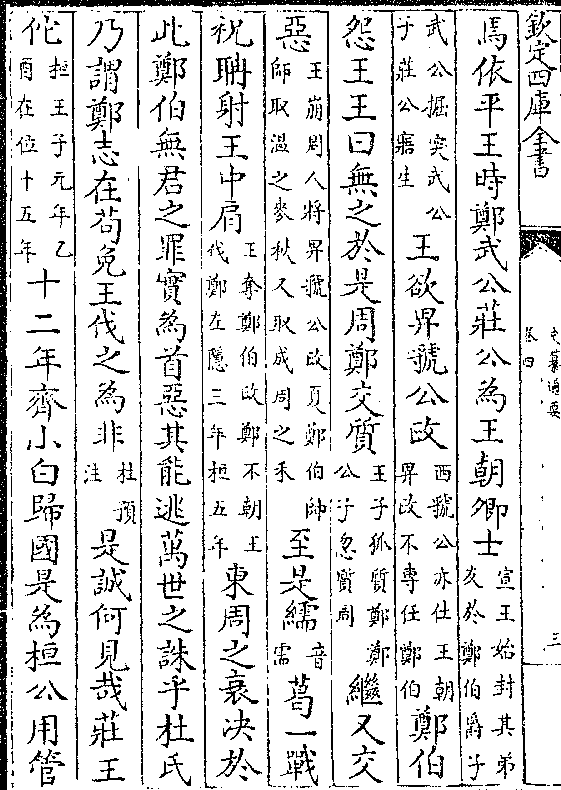 欽定四庫全書
史纂通要
卷四
三
焉依平王時鄭武公莊公為王朝卿士宣王始封其弟友於鄭伯爵子
武公掘突武公子莊公寤生王欲畀虢公政西虢公亦仕王朝畀政不專任鄭伯鄭伯
怨王王曰無之於是周鄭交質王子狐質鄭鄭公子忽質周繼又交
惡王崩周人將畀虢公政夏鄭伯帥師取溫之麥秋又取成周之禾至是繻音需葛一戰
祝聃射王中肩王奪鄭伯政鄭不朝王伐鄭在隱三年桓五年東周之衰決於
此鄭伯無君之罪實為首惡其能逃萬世之誅乎杜氏
乃謂鄭志在苟免王伐之為非杜預注是誠何見哉莊王
佗桓王子元年乙酉在位十五年十二年齊小白歸國是為桓公用管